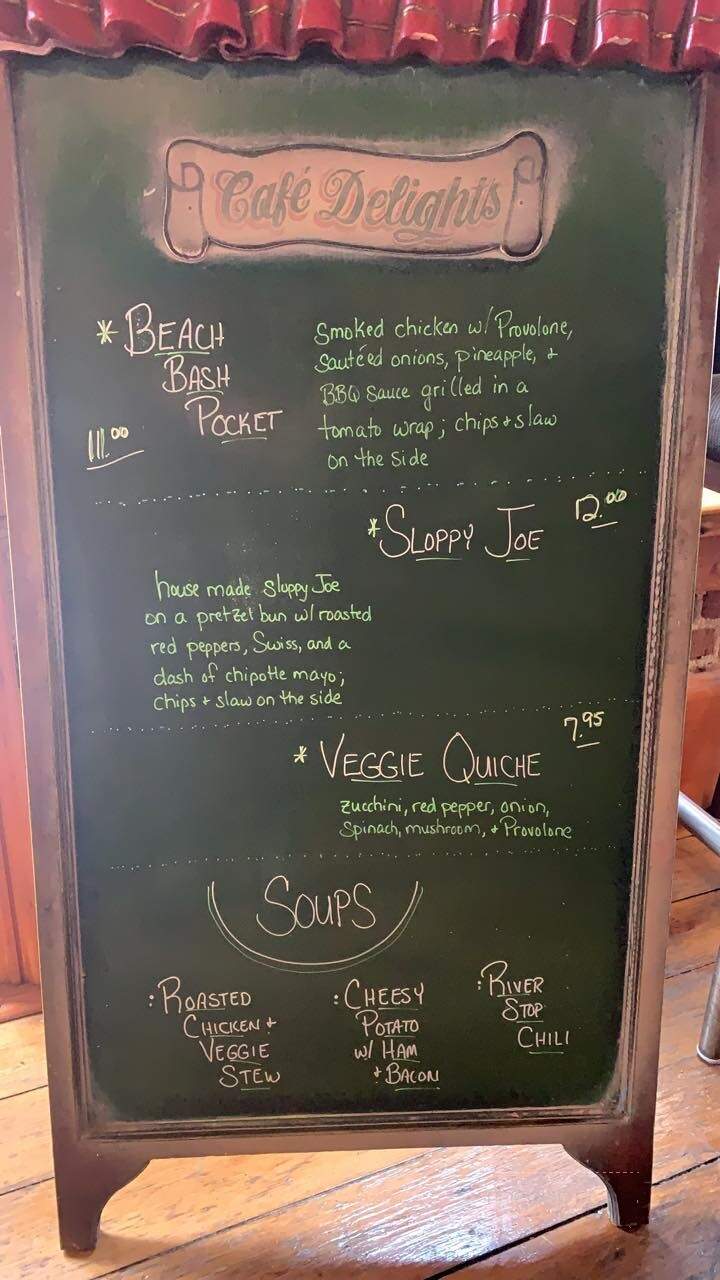 Café Delights
* BEACH
BASH
POCKET
11.00
Smoked chicken w/ Provolone,
sautéed onions, pineapple, +
BBQ sauce grilled in a
tomato wrap; chips + slaw
on the side
* SLOPPY JOE 12.00
house made Sloppy Joe
on a pretzel bun w/ roasted
red peppers, Swiss, and a
dash of chipotle mayo;
chips + slaw on the side
* VEGGIE QUICHE 7.95
zucchini, red pepper, onion,
Spinach, mushroom, + Provolone
SOUPS
: ROASTED
CHICKEN +
VEGGIE
STEW
: CHEESY
POTATO
w/ HAM
+ BACON
: RIVER
STOP
CHILI